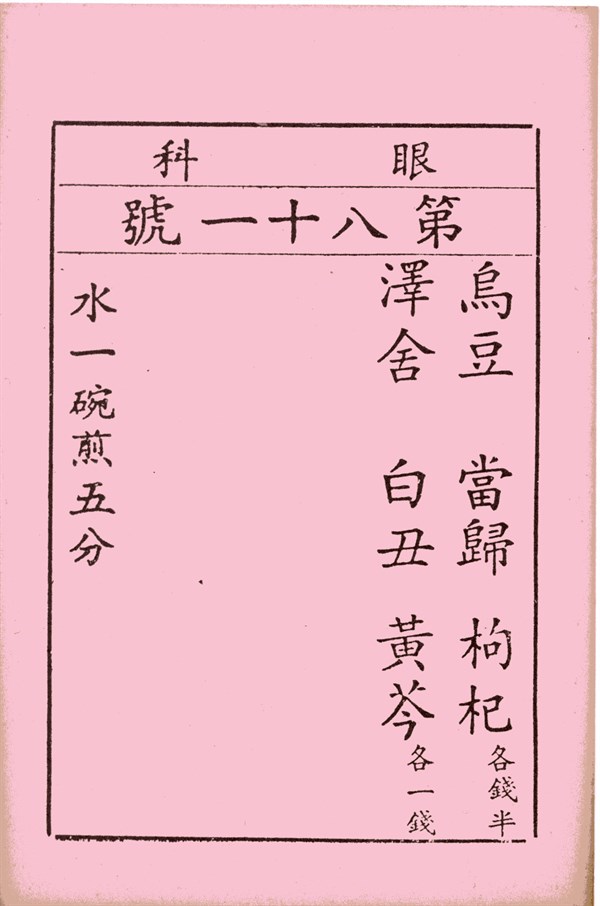 眼科
第八十一號
烏豆 當歸 枸杞各錢半
澤舍 白丑 黃芩各一錢
水一碗煎五分